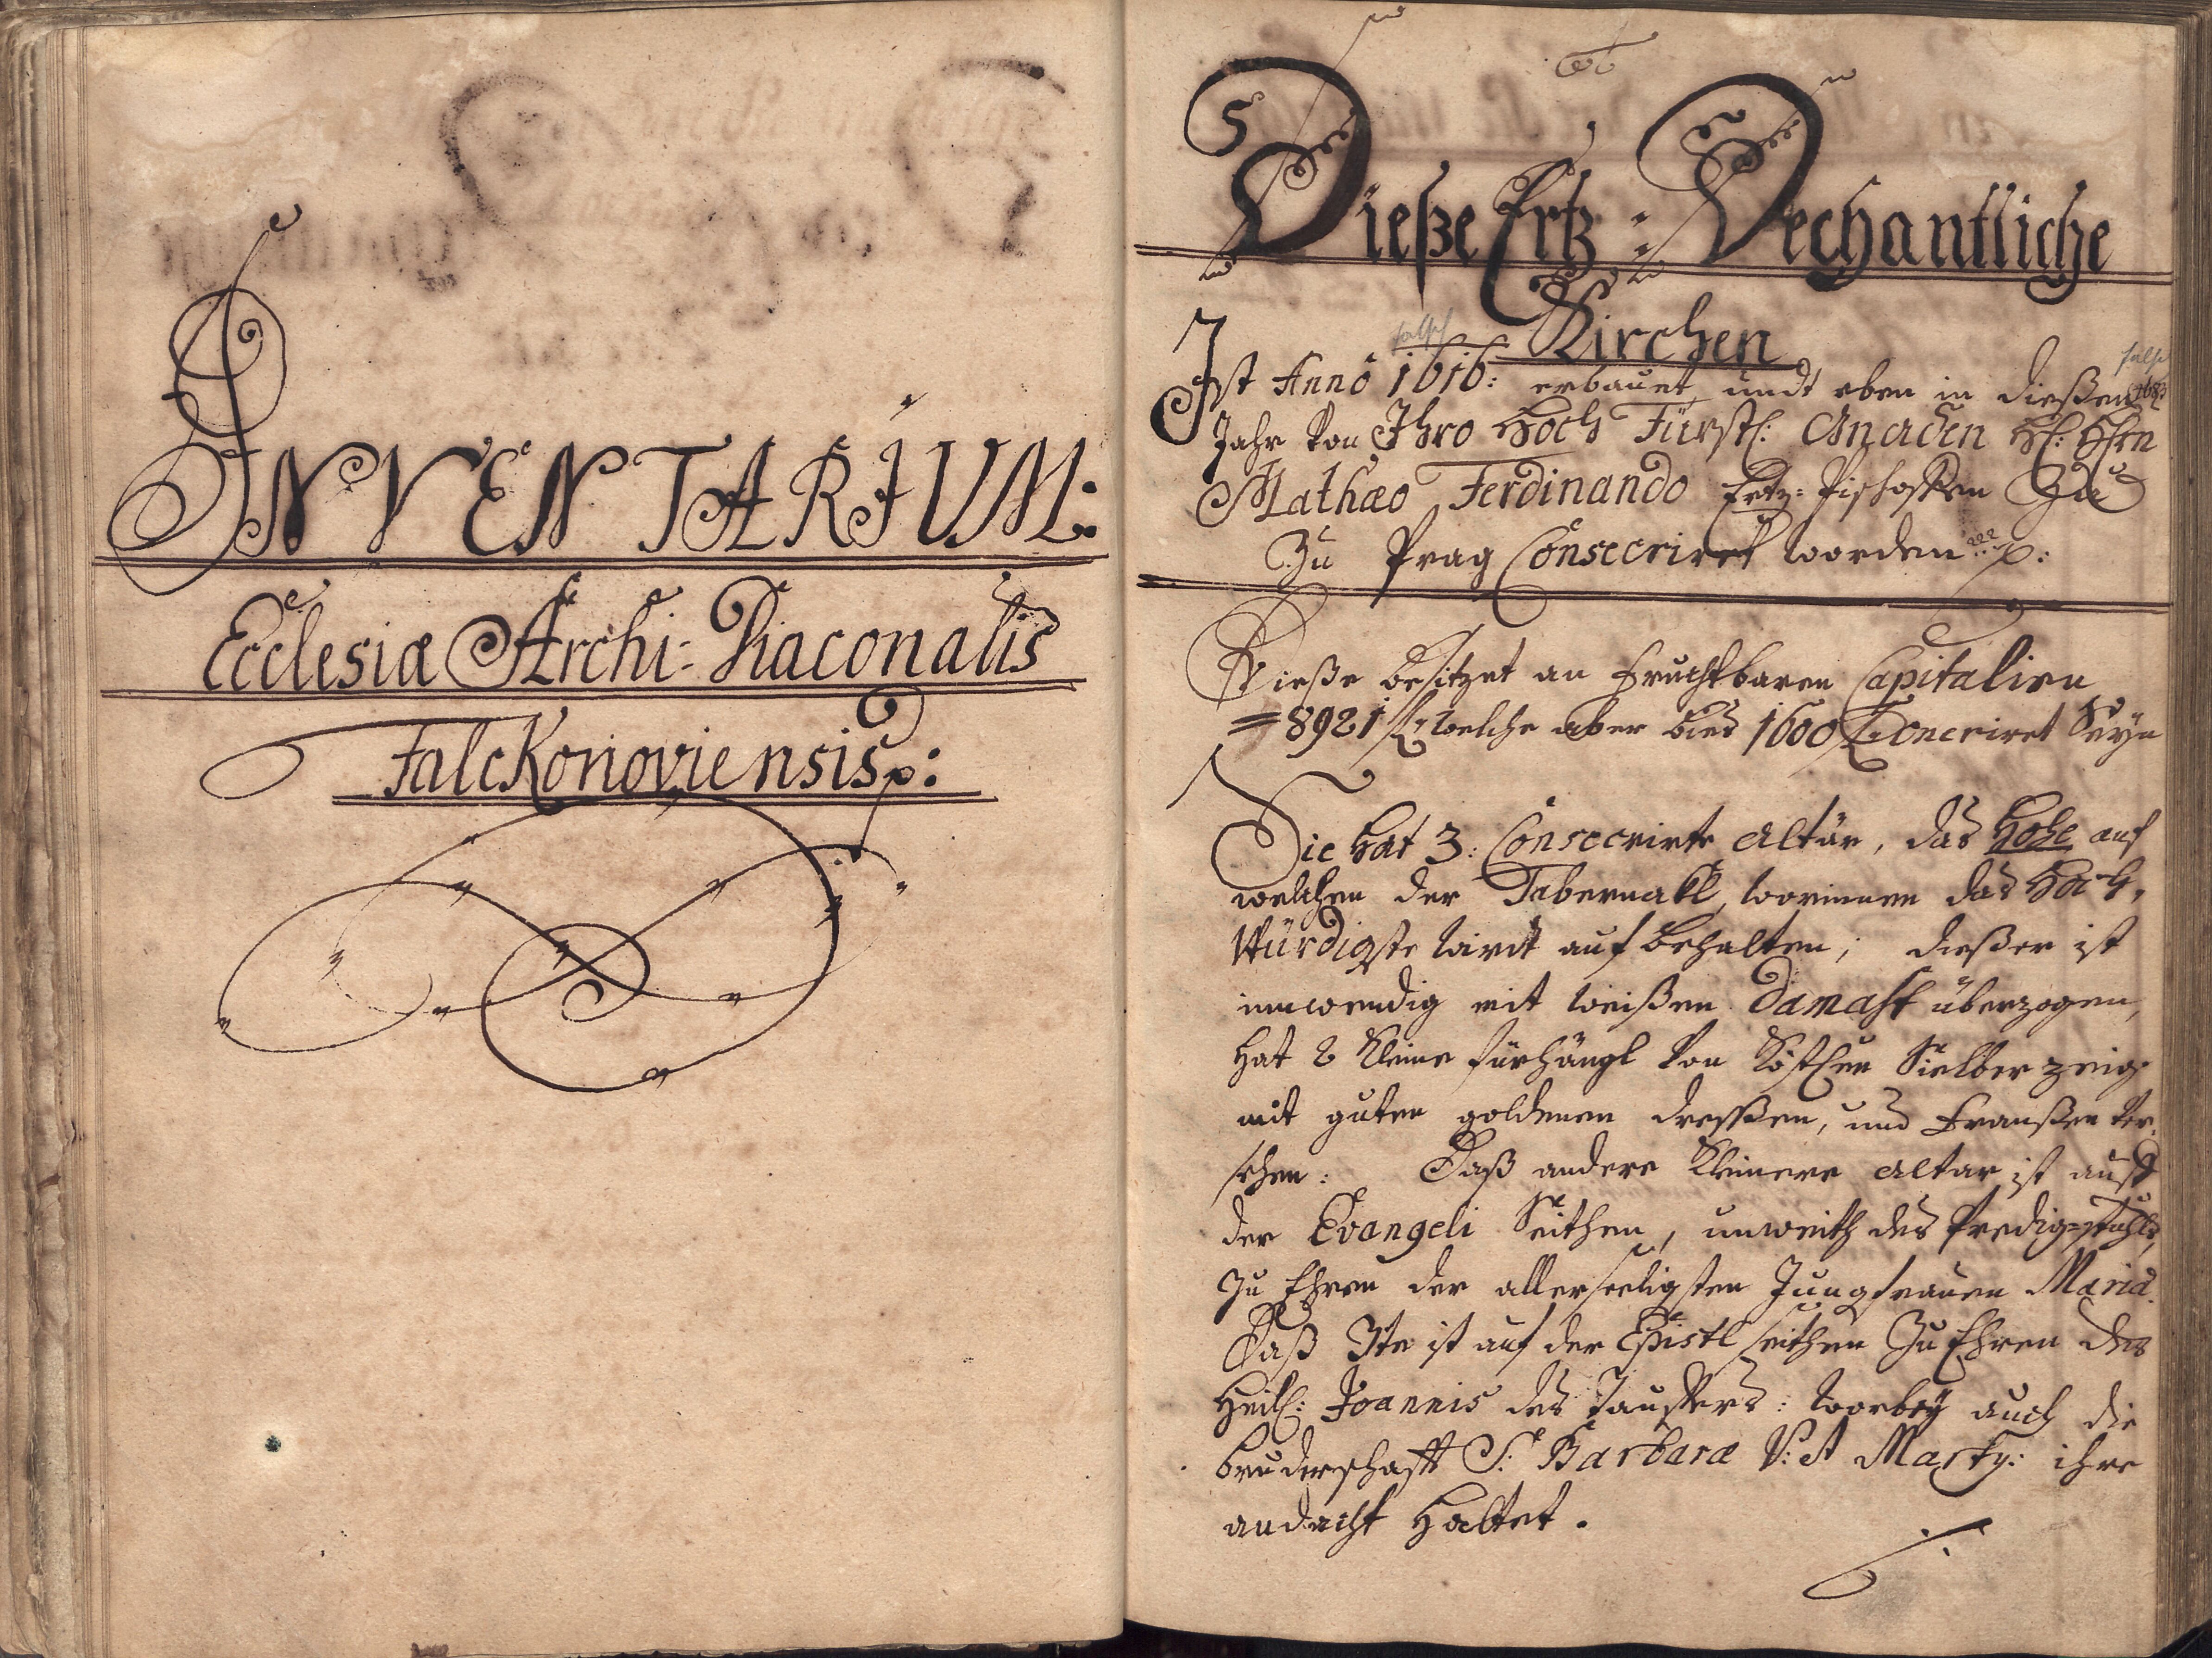 INVENTARIUM:
Ecclesiæ Archi-Diaconalis
Falckonoviensis p:
Dieße Ertz-Dechantliche
Kirchen
falsch
falsch
Ist Anno 1616: erbauet undt eben in dießen 1683
Jahr von Ihro Hoch Fürstl: Gnaden H: Hhrn
Mathæo Ferdinando Ertz-Bischoffen Zu
Zu Prag Consecriret worden p:
Dieße besitzet an Fruchtbaren Capitalien
=8921 f welche aber bis 1600 f Oneriret Seyn
Sie hat 3: Consecrirte Altär, das Hohe auf
welchen der Tabernakl, worinnen das Hoch-
Würdigste wirdt auf behalten; dießer ist
innwendig mit weißen Damast überzogen,
hat 2 kleine fürhängl von köstlen Sielber zeig
mit guten goldenen dressen, und Franßen ver-
sehen: Daß andere kleinere Altar ist auff
der Evangeli Seithen, unweith des Predig-stuhls,
zu Ehren der allerseeligsten Jungfrauen Maria.
Daß 3te ist auf der Epistl seithen Zu Ehren des
Heil: Joannis des Tauffers: worbey auch die
bruderschafft S: Barbaræ V: et Marty: ihre
andacht haltet.